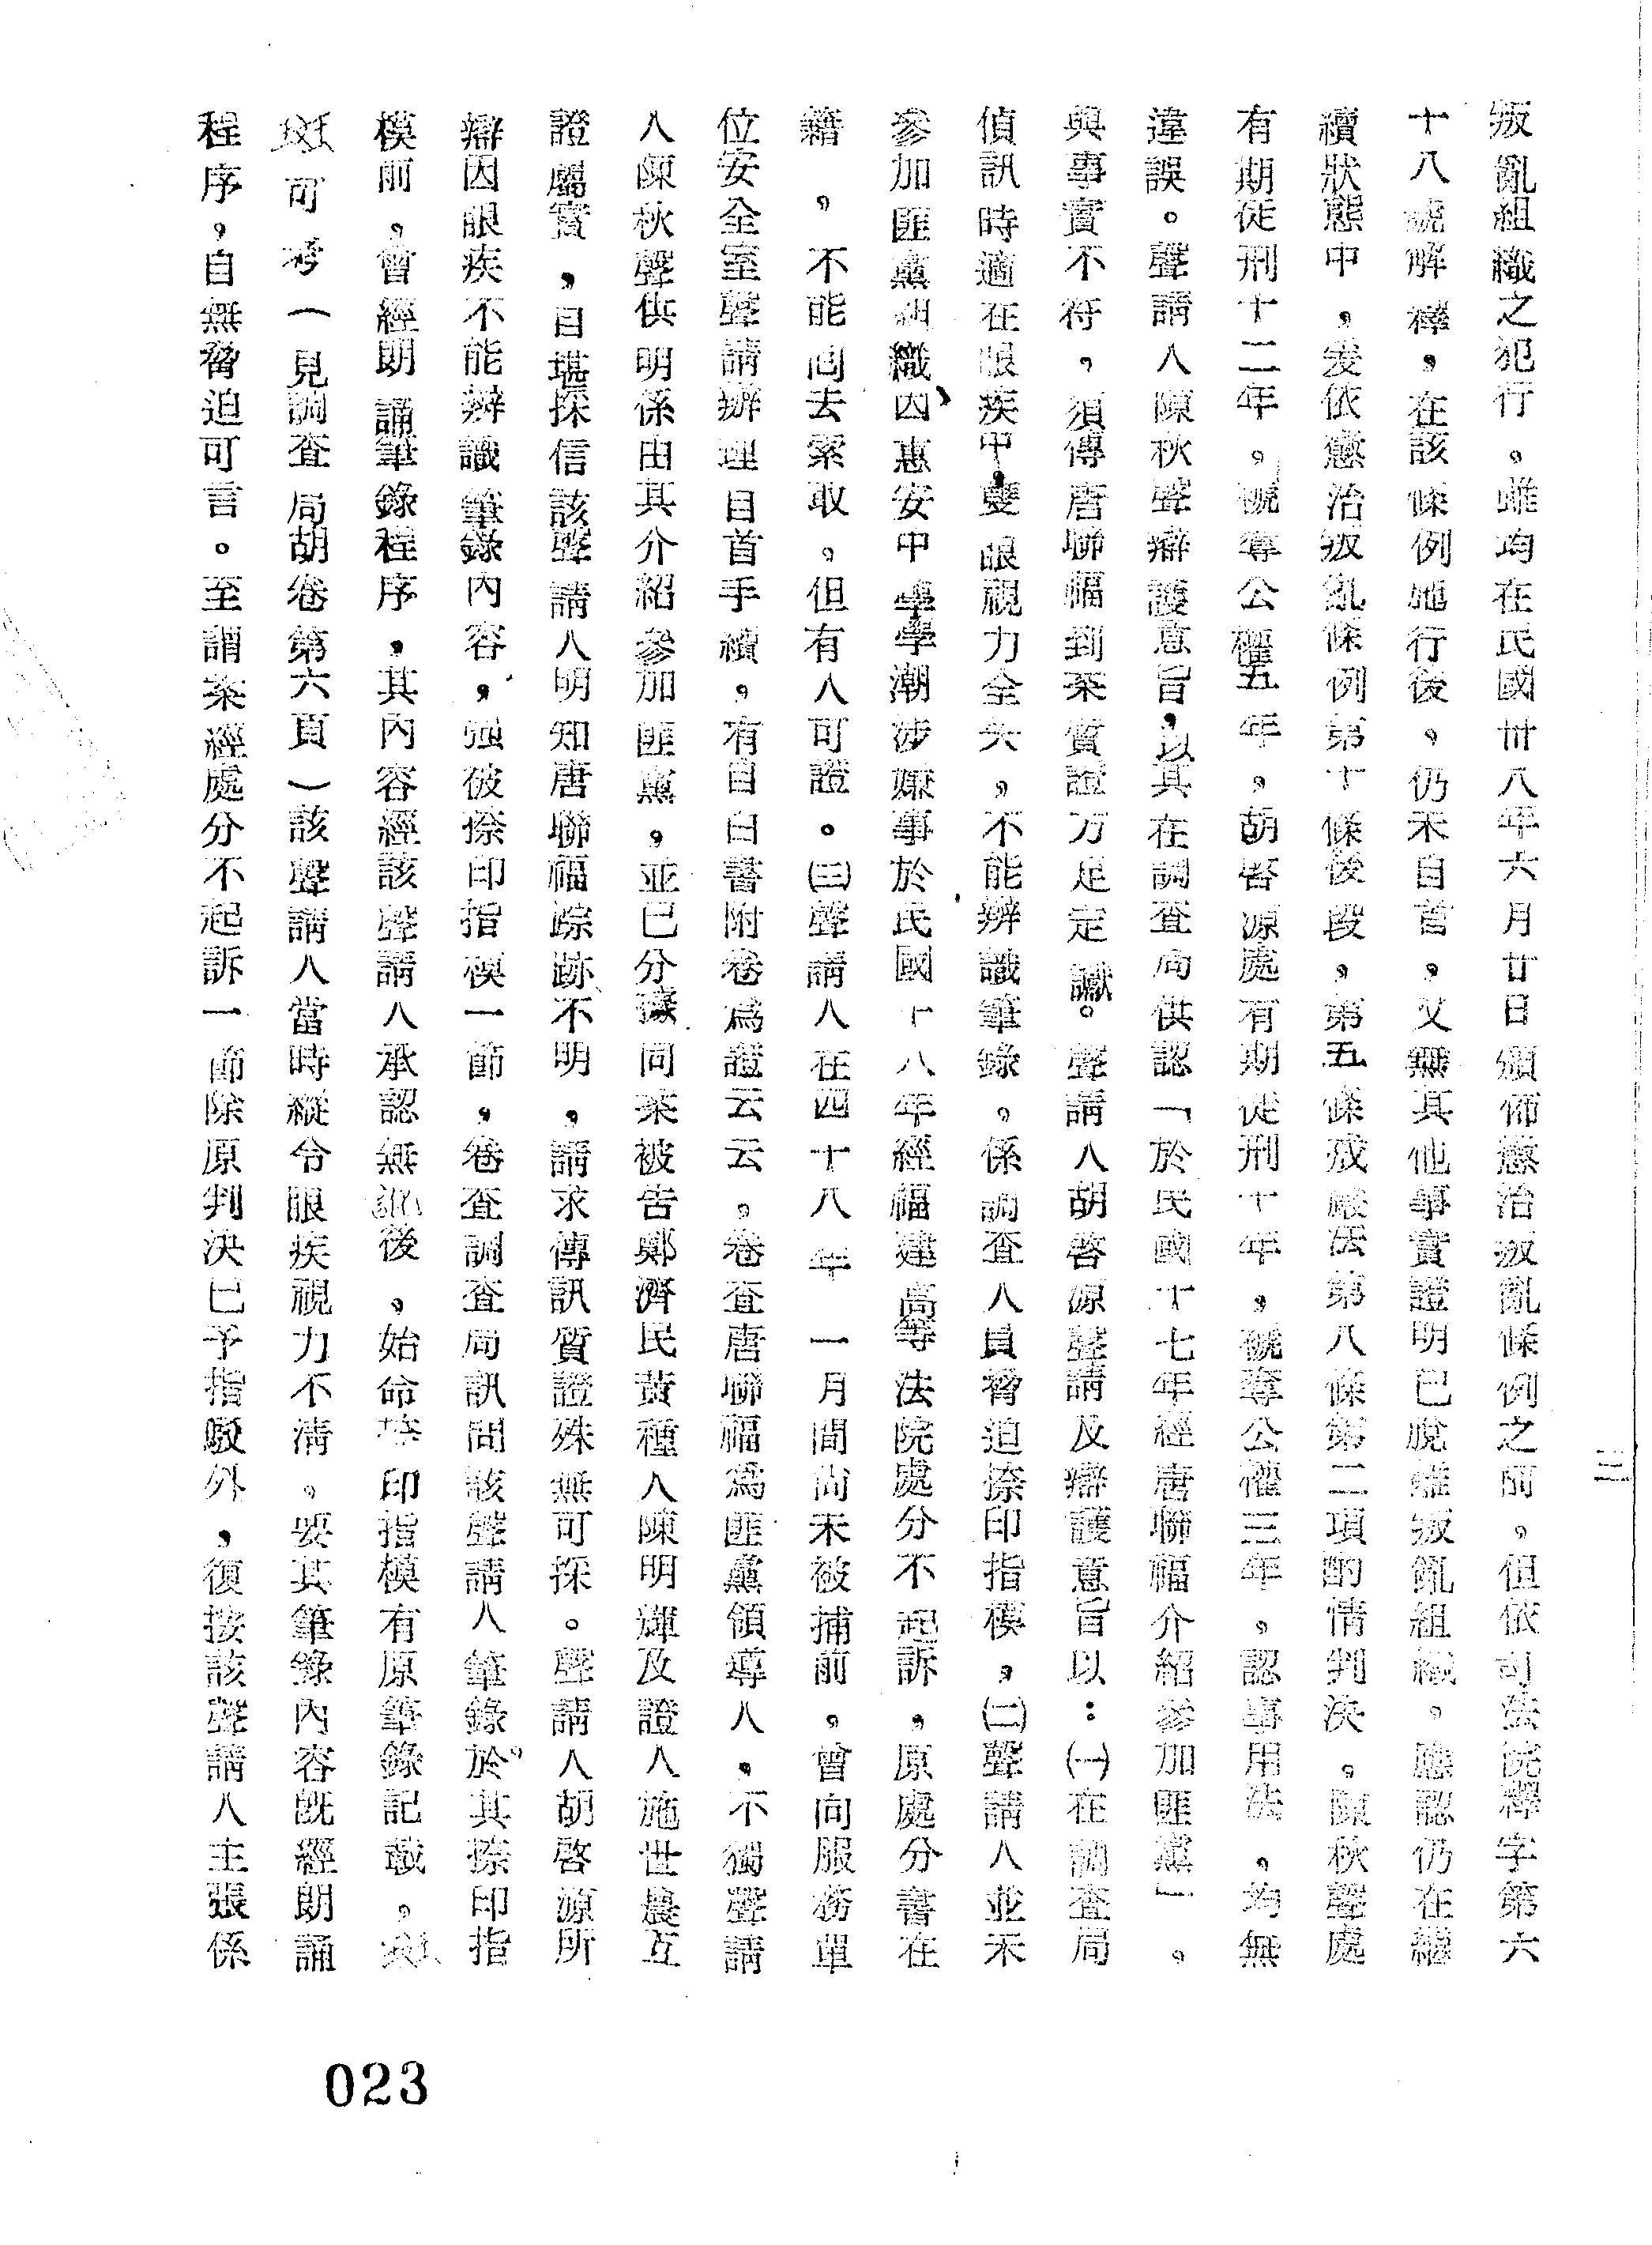 三
叛亂組織之犯行。雖均在民國卅八年六月廿日頒佈懲治叛亂條例之前。但依司法院釋字第六
十八號解釋，在該條例施行後，仍未自首，又無其他事實證明已脫離叛亂組織。應認仍在繼
續狀態中，爰依懲治叛亂條例第十條後段，第五條戒嚴法第八條第二項酌情判決。陳秋聲處
有期徒刑十二年。褫奪公權五年。胡啓源處有期徒刑十年，褫奪公權三年。認事用法。均無
違誤。聲請人陳秋聲辯護意旨，以其在調查局供認「於民國十七年經唐聯福介紹參加匪黨」。
與事實不符，須傳唐聯福到案質證方足定讞。聲請人胡啓源聲請及辯護意旨以：㈠在調查局
偵訊時適在眼疾中，雙眼視力全失，不能辨識筆錄。係調查人員脅迫捺印指模，㈡聲請人並未
參加匪黨組織、因惠安中學學潮涉嫌事於民國十八年經福建高等法院處分不起訴，原處分書在
籍，不能回去索取。但有人可證。㈢聲請人在四十八年一月間尚未被捕前，曾向服務單
位安全室聲請辦理自首手續，有自白書附卷爲證云云。卷查唐聯福爲匪黨領導人，不獨聲請
人陳秋聲供明係由其介紹參加匪黨，並已分據同案被告鄭濟民黃種人陳明輝及證人施世農互
證屬實，自堪採信該聲請人明知唐聯福踪跡不明，請求傳訊質證殊無可採。聲請人胡啓源所
辯因眼疾不能辨識筆錄內容，强被捺印指模一節，卷查調查局訊問該聲請人筆錄於其捺印指
模前，曾經朗誦筆錄程序，其內容經該聲請人承認無訛後，始命捺印指模有原筆錄記載。
可考（見調查局胡卷第六頁）該聲請人當時縱令眼疾視力不清。要其筆錄內容旣經朗誦
程序，自無脅迫可言。至謂案經處分不起訴一節除原判決已予指駁外，復按該聲請人主張係
023